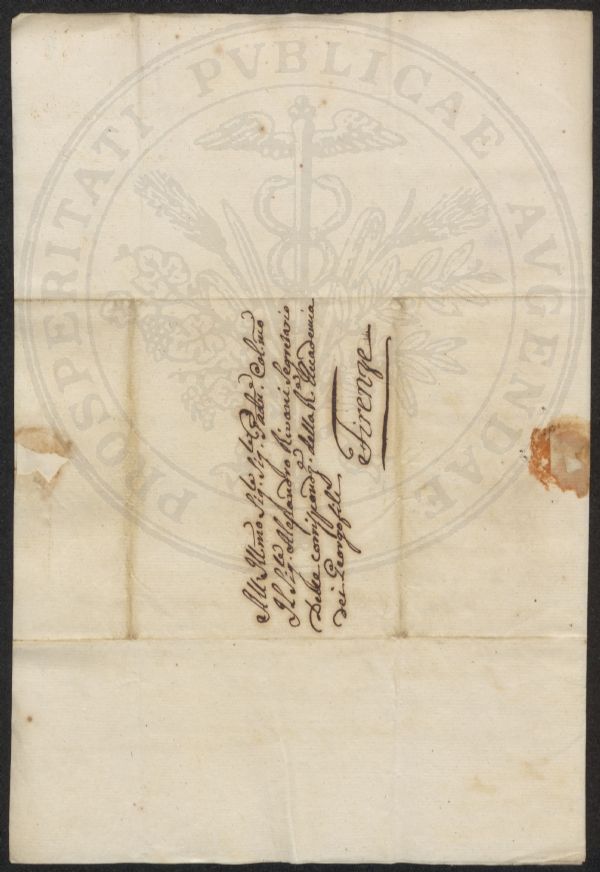 All Ill.mo Sig.e Sig.e Padn. Col.mo
Il Sig.e Alessandro Rivani Segretario
Delle corrispond.e della R.a Accademia
dei Georgofili
Firenze
PROSPERITATI PVBLICAE AVGENDAE